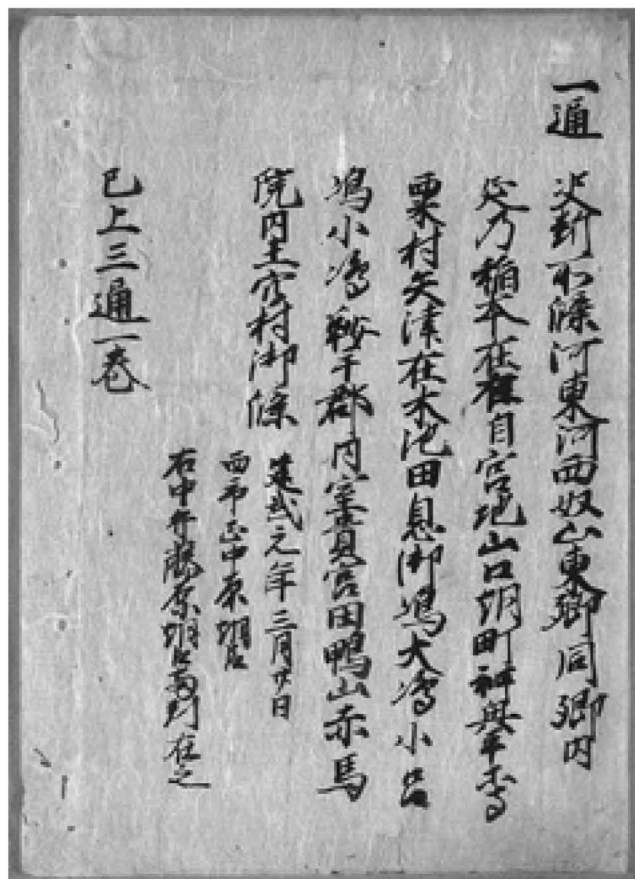 一通 決断所牒河東河西奴山東郷同郷内
延乃稲本在自宮地山口胡町神興平等
粟村矢津在木池田息御嶋大嶋小呂
嶋小嶋鞍手郡内室貴見宮田鴨山赤馬
院内土穴村御牒
建武元年三月廿日
西市正中原朝臣
右中弁藤原朝臣両判在之
已上三通一巻